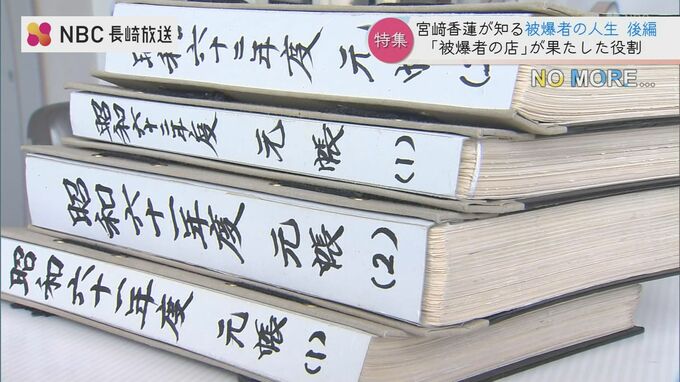 NBC 長崎放送
特集
宮﨑香蓮が知る被爆者の人生 後編
「被爆者の店」が果たした役割
NO MORE...
昭和六十三年度 元帳 (2)
昭和六十二年度 元帳 (1)
昭和六十一年度 元帳 (2)
昭和六十一年度 元帳 (1)